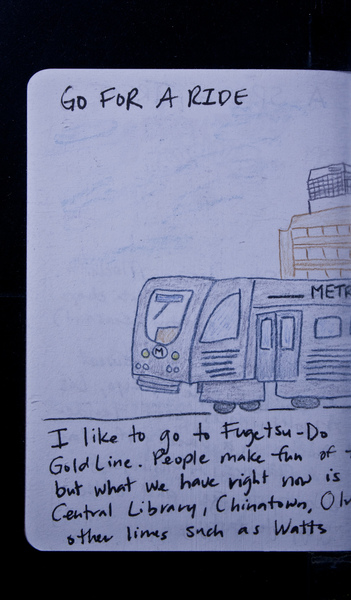 GO FOR A RIDE
METR
M
I like to go to Fugetsu-Do
Gold Line. People make fun of
but what we have right now is
Central Library, Chinatown, Olv
other lines such as Watts